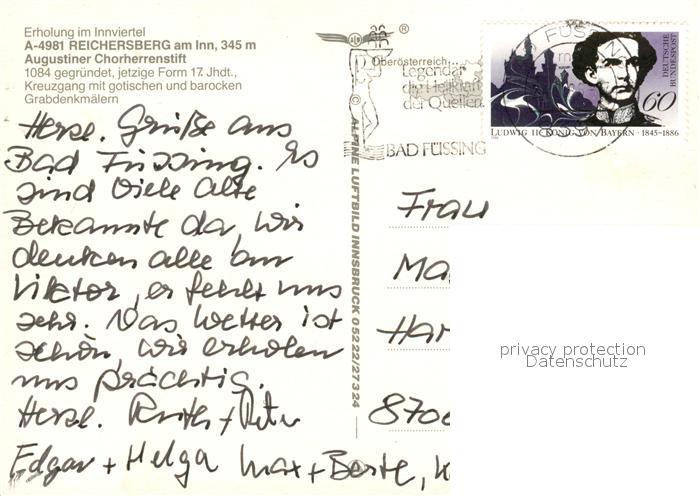 Erholung im Innviertel
A-4981 REICHERSBERG am Inn, 345 m
Augustiner Chorherrenstift
1084 gegründet, jetzige Form 17. Jhdt.,
Kreuzgang mit gotischen und barocken
Grabdenkmälern
Oberösterreich...
Legendär
die Heilkraft
der Quellen
BAD FÜSSING
FÜSSING
DEUTSCHE BUNDESPOST
60
LUDWIG II · KÖNIG VON BAYERN · 1845-1886
© ALPINE LUFTBILD INNSBRUCK 05222/27324
Herzl. Grüße aus
Bad Füssing. Es
sind viele alte
Bekannte da, wir
denken alle an
Viktor, er fehlt uns
sehr. Das Wetter ist
schön, wir erholen
uns prächtig.
Herzl. Ruth + Peter
Edgar + Helga Max + Beate,
Frau
Ma
Har
870
privacy protection
Datenschutz